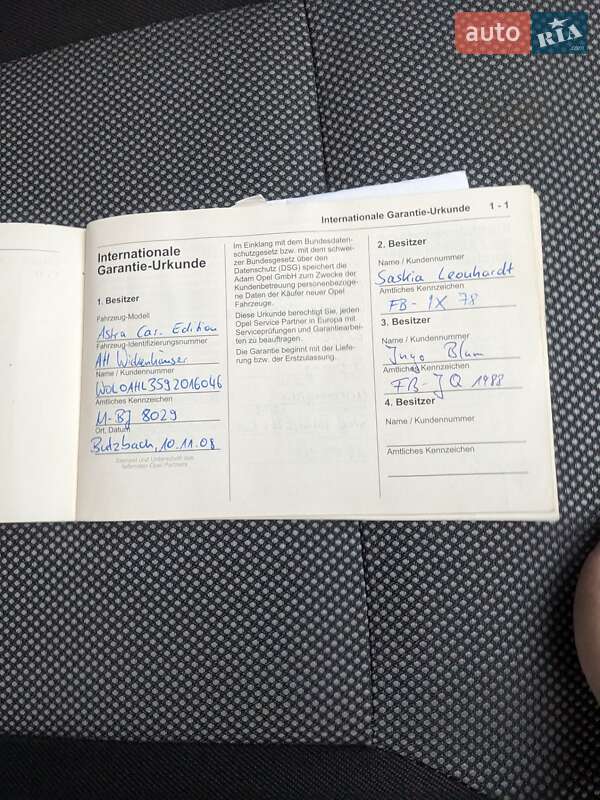 auto RIA.com
Internationale Garantie-Urkunde 1 - 1
Internationale
Garantie-Urkunde
1. Besitzer
Fahrzeug-Modell
Astra Car. Edition
Fahrzeug-Identifizierungsnummer
AH Wickenhäuser
Name / Kundennummer
WOLOAHL3592016046
Amtliches Kennzeichen
M-BJ 8029
Ort, Datum
Butzbach, 10.11.08
Stempel und Unterschrift des
liefernden Opel Partners
Im Einklang mit dem Bundesdaten-
schutzgesetz bzw. mit dem schwei-
zer Bundesgesetz über den
Datenschutz (DSG) speichert die
Adam Opel GmbH zum Zwecke der
Kundenbetreuung personenbezoge-
ne Daten der Käufer neuer Opel
Fahrzeuge.
Diese Urkunde berechtigt Sie, jeden
Opel Service Partner in Europa mit
Serviceprüfungen und Garantiearbei-
ten zu beauftragen.
Die Garantie beginnt mit der Liefe-
rung bzw. der Erstzulassung.
2. Besitzer
Name / Kundennummer
Saskia Leonhardt
Amtliches Kennzeichen
FB-IX 78
3. Besitzer
Name / Kundennummer
Ingo Blum
Amtliches Kennzeichen
FB-JQ 1988
4. Besitzer
Name / Kundennummer
Amtliches Kennzeichen